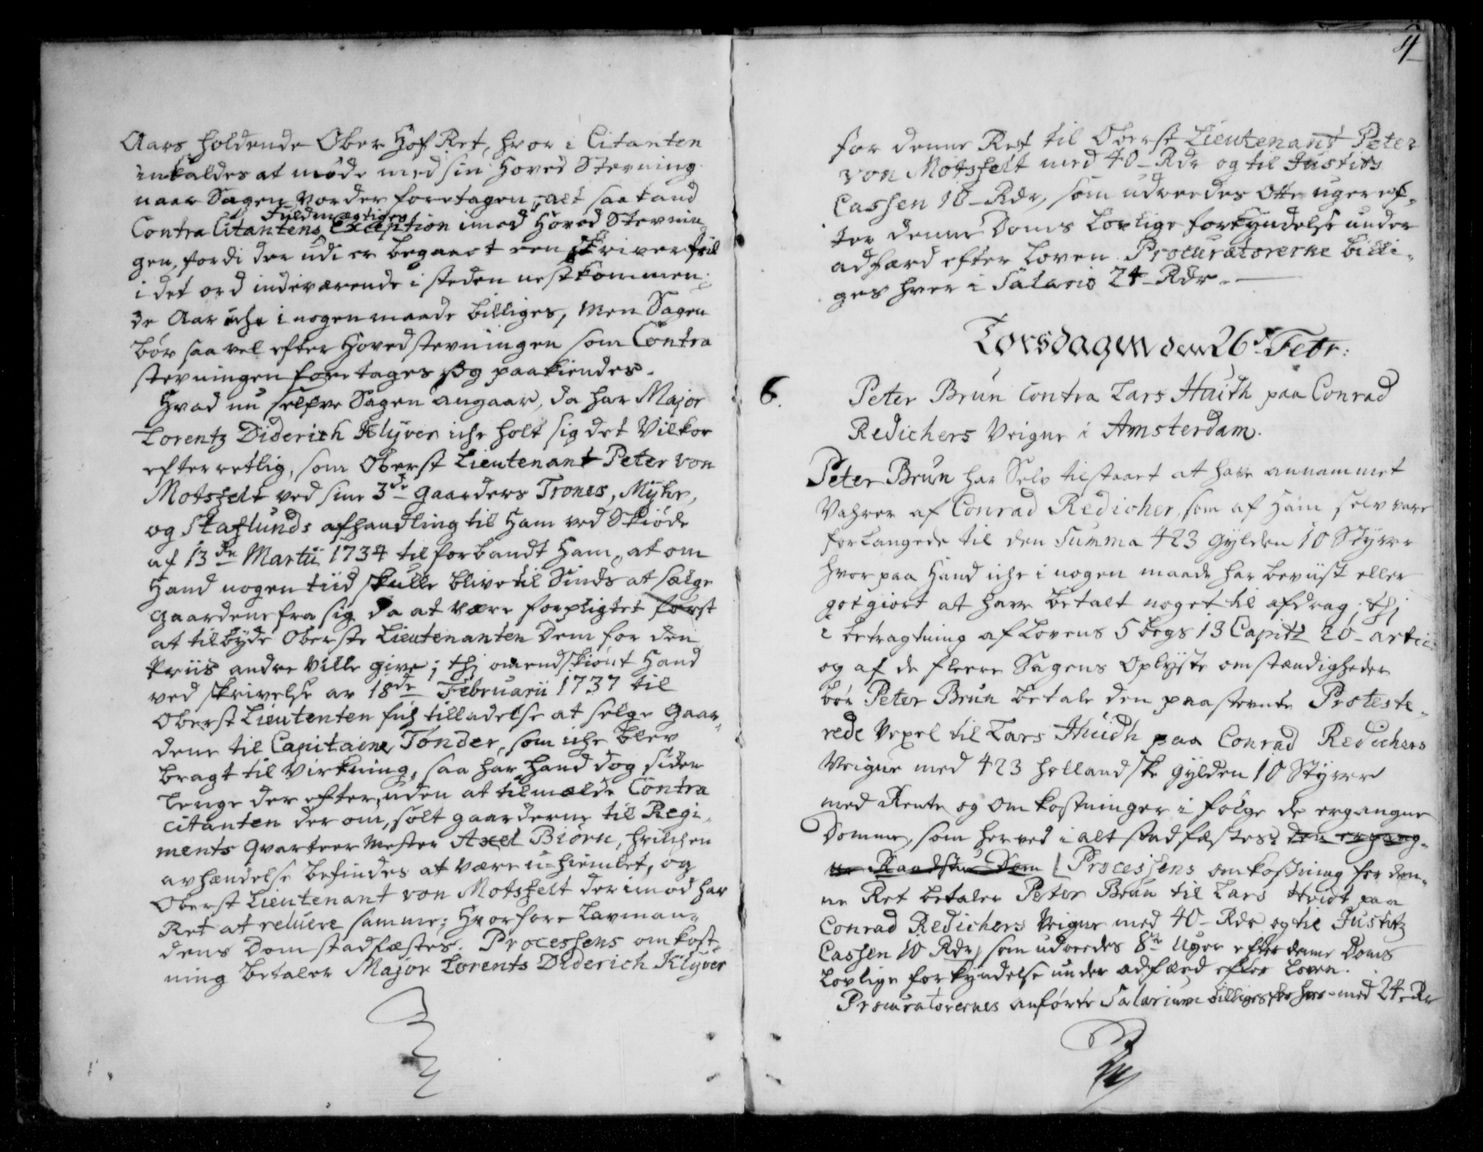 Aars holdende Ober Hof Ret, hvor i Citanten
indkaldes at møde med sin Hoved Stevning
naar Sagen vorder foretagen, alt saa kand
Fuldmægtiges
Contra Citantens Exception imod Hoved Stevnin
gen, fordi der udi er begaaet een skriver feil
i det ord indeværende i steden nestkommen-
de Aar iche i nogen maade billiges, men Sagen
bør saa vel efter Hovedstevningen som Contra
stevningen foretages og paakiendes.
Hvad nu selfve Sagen angaar, da har Major
Lorentz Diderich Klÿver iche holt sig det Vilkor
efterrettlig, som Oberst Lieutenant Peter von
Motzfelt ved sine 3de gaarders Trones, Mÿhr,
og Skaflunds afhandling til Ham ved Skiøde
af 13de Martii 1734 tilforbandt Ham, at om
Hand nogen tiid skulle blive til Sinds at sælge
gaardene fra sig da at være forpligtet først
at tilbyde Oberst Lieutenanten dem for den
Priis andre Ville give; thj omendskiønt Hand
ved skrivelse av 18de Februarii 1737 til
Oberst Lieutenten fich tilladelse at selge gaar-
dene til Capitaine Tønder, som iche blev
bragt til Virkning, saa har hand dog siden
lenge der efter, uden at tilmælde Contra
citanten der om, solt gaarderne til Regi-
ments qvarteer Mester Axel Biørn, hvilchen
avhændelse befindes at være u-hiemlet, og
Oberst Lieutenant von Motzfelt derimod har
Ret at reluere samme; Hvorfore Lavman-
dens Dom stadfæstes. Processens omkost-
ning betaler Major Lorents Diderich Klÿver
4
for denne Ret til Oberst Lieutenant Peter
von Motzfelt med 40 Rdr og til Justits
Cassen 10 Rdr, som udreedes Otte uger ef-
ter denne Doms Lovlige forkyndelse under
adfærd efter Loven. Procuratorerne billi-
ges hver i Salario 24 Rdr.
Torsdagen den 26de Febr:
6. Peter Brun Contra Lars Huidh paa Conrad
Redichers Veigne i Amsterdam.
Peter Brun har Selv tilstaaet at have annammet
Vahrer af Conrad Redicher, som af Ham selv vare
forlangede til den Summa 423 Gylden 10 Styver
hvorpaa Hand iche i nogen maade har beviist eller
godgiort at have betalt noget til afdrag; thj
i betragtning af Lovens 5 bogs 13 Capitl 20 artic:
og af de fleere Sagens Oplyste omstændigheder
bør Peter Brun betale den paastevnte Proteste-
rede Vexel til Lars Huidh paa Conrad Redichers
Veigne med 423 hollandske gylden 10 Styver
med Rente og omkostninger i følge de ergangne
Domme, som herved i alt stadfæstes; den ergang-
ne Raadstue Dom Processens omkostning for den-
ne Ret betaler Peter Brun til Lars Hvidt paa
Conrad Redichers Veigne med 40 Rdr og til Justitz
Cassen 10 Rdr, som udreedes 8te Uger efter denne Doms
Lovlige forkyndelse under adfærd efter Loven.
Procuratorernes anførte Salarium billiges hver med 24 Rdr